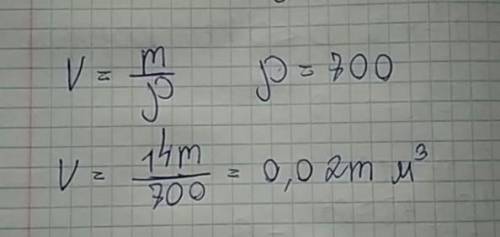 V = m/ρ ρ = 700
V = 14m/700 = 0,02m м³